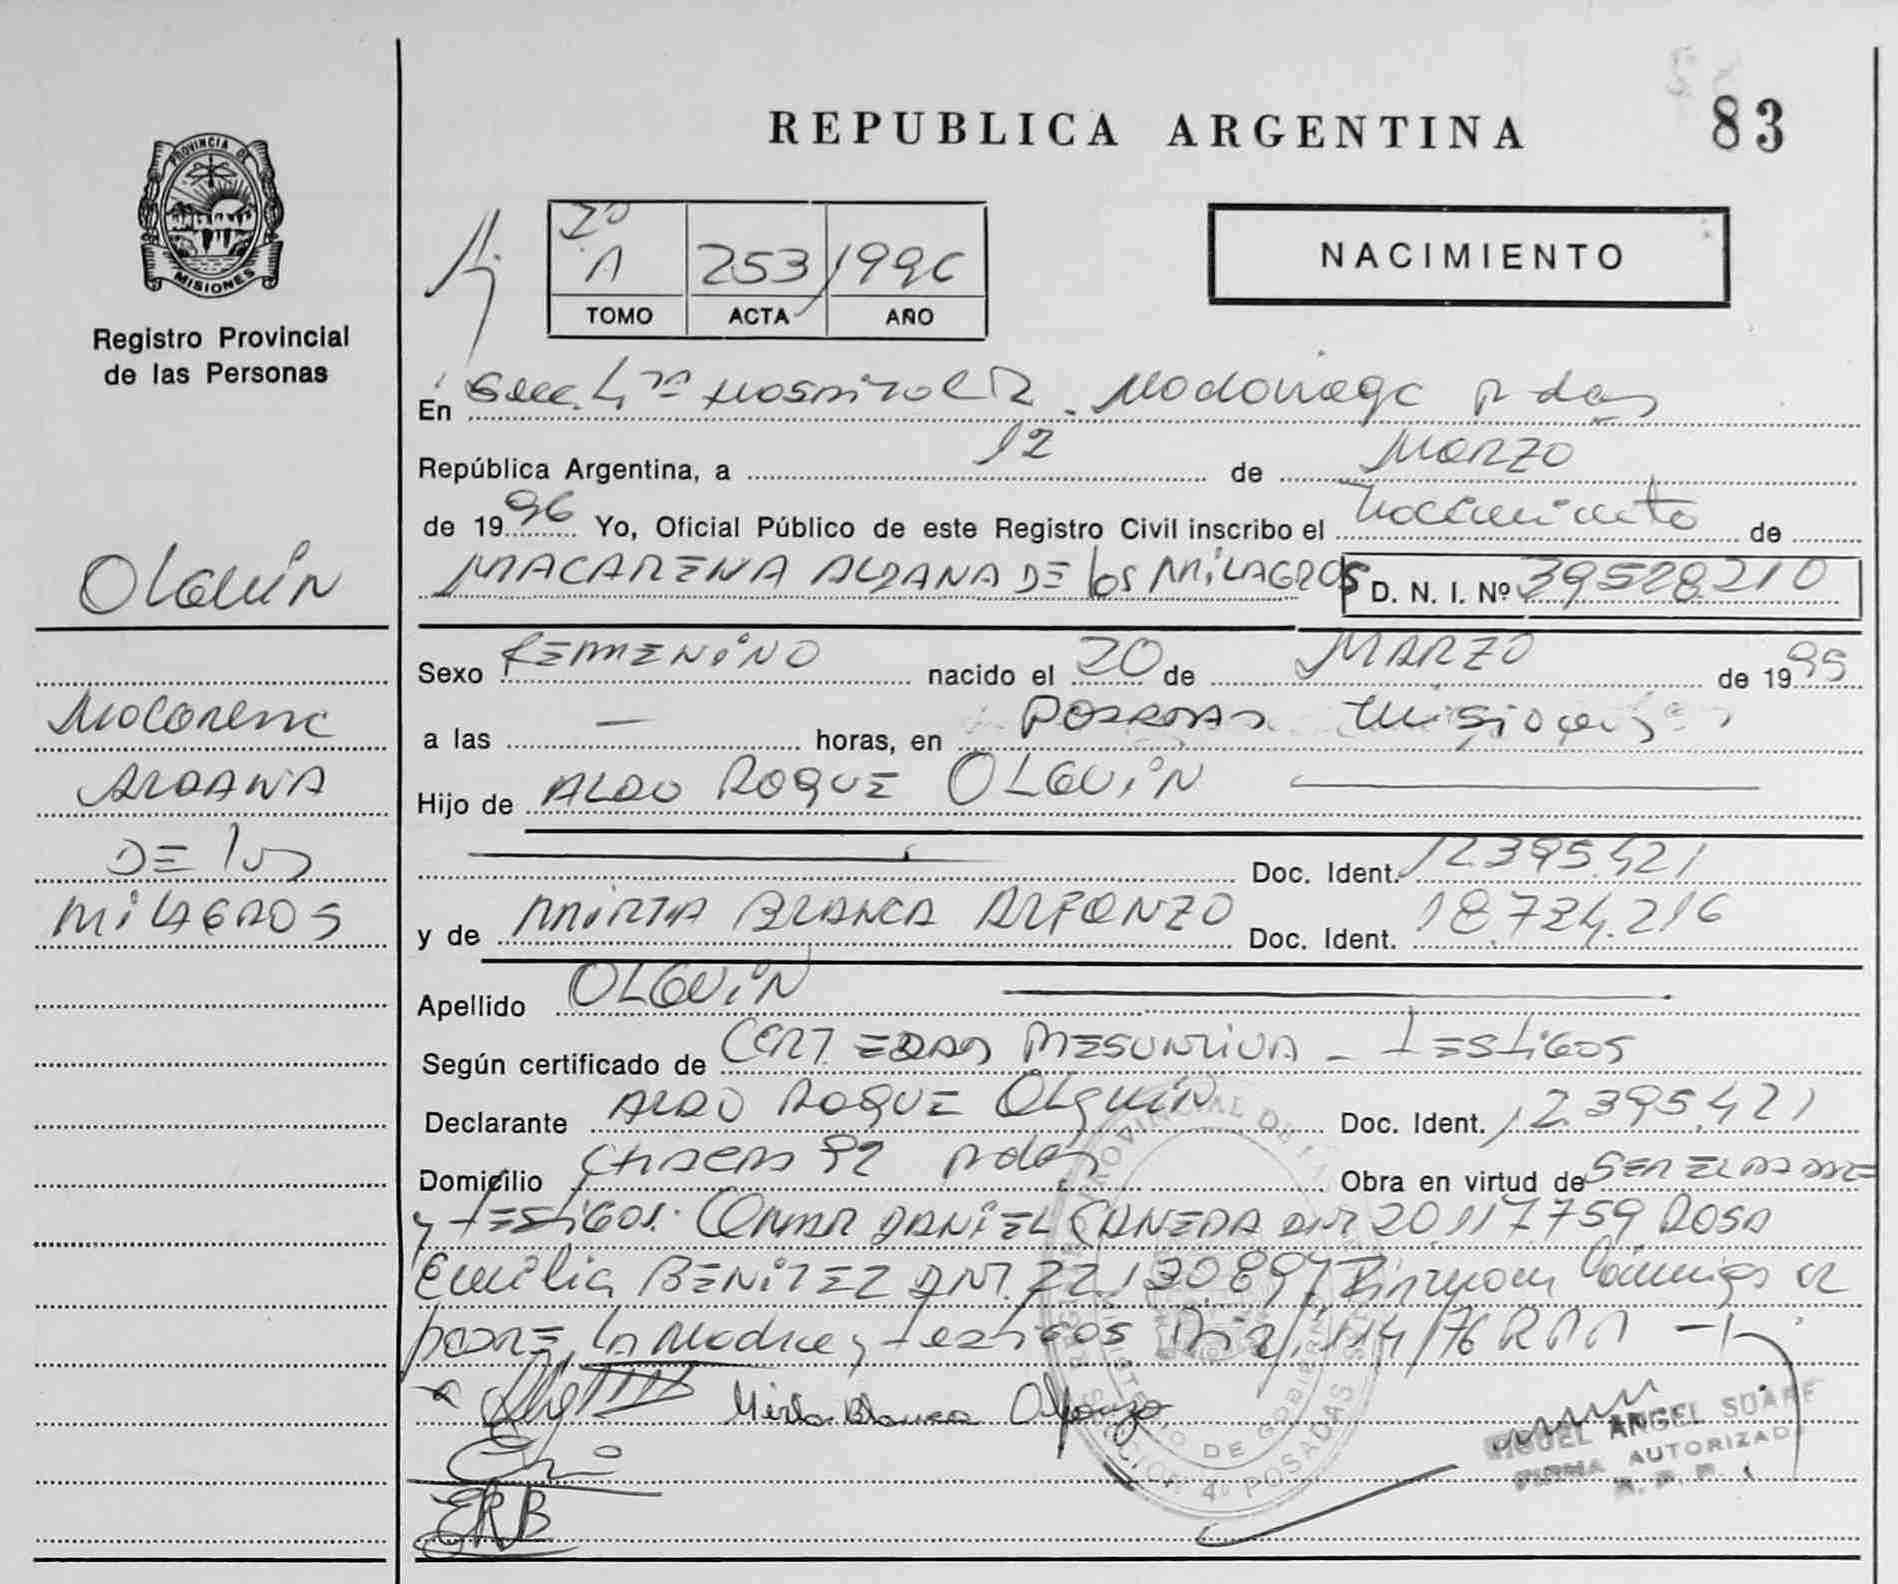 REPUBLICA ARGENTINA
83
PROVINCIA DE
MISIONES
Registro Provincial
de las Personas
2º
A 253 1996
TOMO ACTA AÑO
NACIMIENTO
En Secc. 4ta Hospital R. Madariaga Pdas
República Argentina, a 12 de Marzo
de 1996 Yo, Oficial Público de este Registro Civil inscribo el Nacimiento de
MACARENA ALDANA DE los MILAGROS D. N. I. Nº 39528.210
Sexo FEMMENINO nacido el 20 de MARZO de 1995
a las — horas, en POSADAS Misiones
Hijo de ALDO ROQUE OLGUIN
Doc. Ident. 12.395.421
y de MIRTA BLANCA ALFONZO Doc. Ident. 18.734.216
Apellido OLGUIN
Según certificado de CERT. EDAD PRESUNTIVA - TESTIGOS
Declarante ALDO ROQUE OLGUIN Doc. Ident. 12.395.421
Domicilio CHACRA 92 Pdas Obra en virtud de SER EL PADRE
y TESTIGOS. OMAR DANIEL CANEDA DNI 20.117.759 ROSA
Emilia BENITEZ DNI. 22.130.897 Firman Conmigo el
PADRE, LA Madre y testigos 114/76
Mirta Blanca Alfonzo
ERB
MIGUEL ANGEL SUARE
FIRMA AUTORIZAD
R. P. P.
OLGUIN
Macarena
ALDANA
DE los
MILAGROS
REGISTRO PROVINCIAL DE LAS
MINISTERIO DE GOBIERNO
SECCION 4º POSADAS